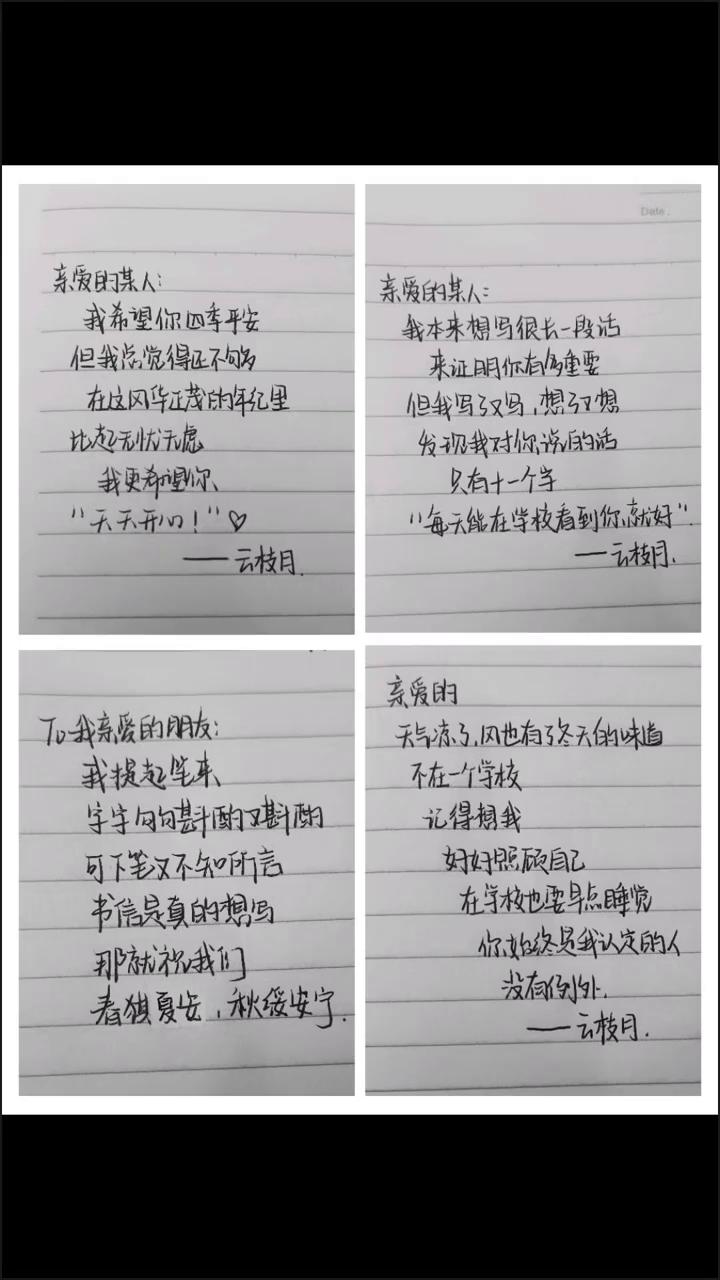 亲爱的某人：
我希望你四季平安
但我总觉得还不够
在这风华正茂的年纪里
比起无忧无虑
我更希望你、
"天天开心！"♡
——云枝月.
Date.
亲爱的某人：
我本来想写很长一段话
来证明你有多重要
但我写了又写，想了又想
发现我对你说的话
只有十一个字
"每天能在学校看到你就好".
——云枝月.
To我亲爱的朋友：
我提起笔来
字字句句斟酌又斟酌
可下笔又不知所言
书信是真的想写
那就祝我们
春祺夏安，秋绥安宁.
亲爱的
天气凉了，风也有了冬天的味道
不在一个学校
记得想我
好好照顾自己
在学校也要早点睡觉
你始终是我认定的人
没有例外.
——云枝月.